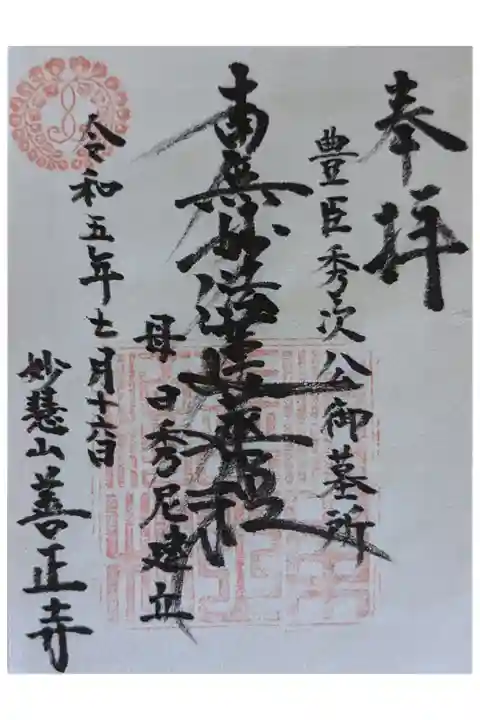 奉拝
豊臣秀次公御墓所
南無妙法蓮華経
母日秀尼建立
令和五年七月十六日
妙慧山善正寺